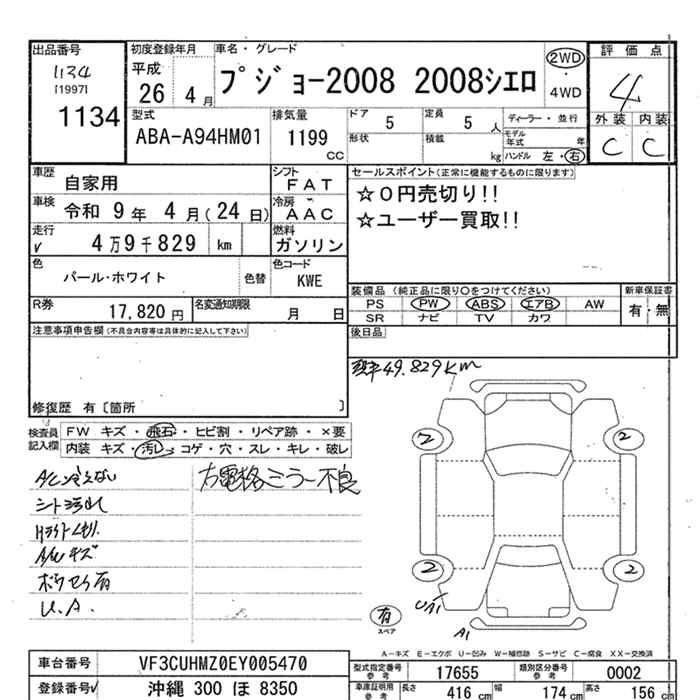 出品番号
1134
[1997]
1134
初度登録年月
平成
26 4月
車名・グレード
プジョー2008 2008シエロ
2WD
・
4WD
評価点
4
外装 内装
C C
型式
ABA-A94HM01
排気量
1199
CC
ドア
5
定員
5 人
形状
積載
kg
ディーラー・並行
モデル年式 年
ハンドル 左・右
車歴
自家用
シフト
FAT
車検
令和 9年 4月(24日)
冷房
AAC
走行
✓ 4万9千829 km
燃料
ガソリン
色
パール・ホワイト
色替
色コード
KWE
R券
17,820円
名変通知期限
月 日
セールスポイント(正常に機能するものに限ります)
☆0円売切り!!
☆ユーザー買取!!
装備品 (純正品に限り〇をつけてください)
PS PW ABS エアB AW
SR ナビ TV カワ
新車保証書
有・無
後日品
注意事項申告欄(不具合内容等は具体的に記入して下さい)
修復歴 有〔箇所 〕
49.829Km
検査員記入欄
FW キズ・飛石・ヒビ割・リペア跡・×要
内装 キズ・汚レ・コゲ・穴・スレ・キレ・破レ
A/C冷えない
シート汚れ
Hライトくもり
A/Wキズ
ボウセイ有
U.A.
右電格ミラー不良
2 2
2 2
U1
A1
有
スペア
A-キズ E-エクボ U-凹み W-補修跡 S-サビ C-腐食 XX-交換済
車台番号
VF3CUHMZ0EY005470
登録番号✓
沖縄 300 ほ 8350
型式指定番号
参考
17655
類別区分番号
参考
0002
車庫証明用
参考
長さ 416 cm
幅 174 cm
高さ 156 cm